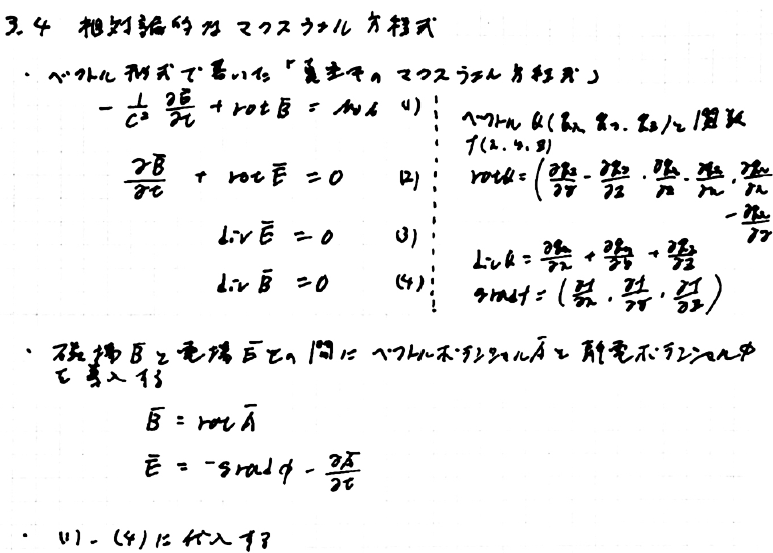 3.4 相対論的なマクスウェル方程式
・ベクトル形式で書いた「真空中のマクスウェル方程式」
-1/c² ∂E̅/∂t + rot B̅ = (1)
∂B̅/∂t + rot E̅ = 0 (2)
div E̅ = 0 (3)
div B̅ = 0 (4)
ベクトル k(kx, ky, kz)と関数
f(x, y, z)
rot k = (∂kz/∂y - ∂ky/∂z, ∂kx/∂z - ∂kz/∂x, ∂ky/∂x
- ∂kx/∂y)
div k = ∂kx/∂x + ∂ky/∂y + ∂kz/∂z
grad f = (∂f/∂x, ∂f/∂y, ∂f/∂z)
・磁場B̅と電場E̅との間にベクトルポテンシャルA̅と静電ポテンシャルφ
を導入する
B̅ = rot A̅
E̅ = -grad φ - ∂A̅/∂t
・(1)-(4)に代入する